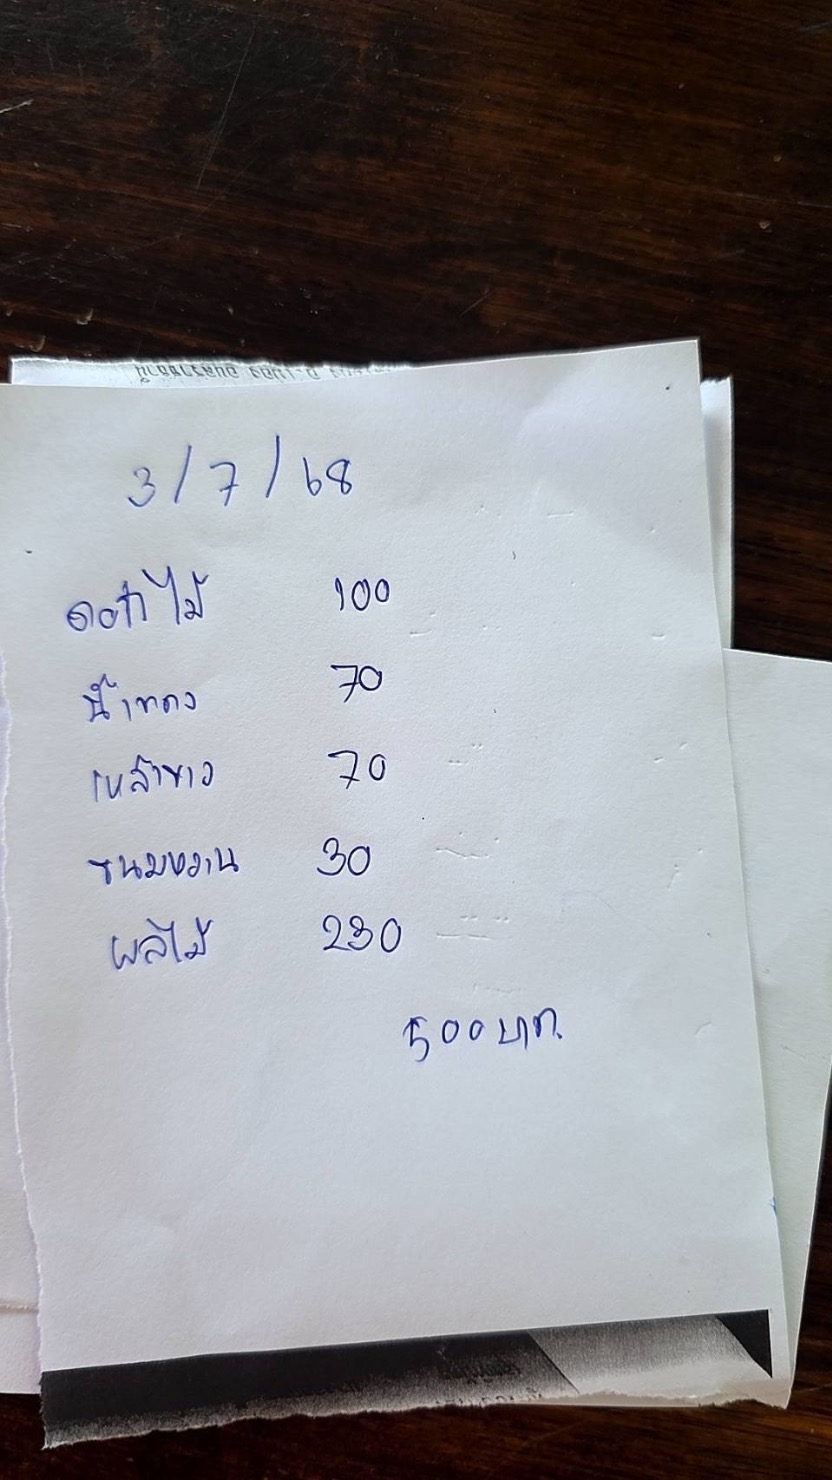 3/7/68
ดอกไม้ 100
น้ำแดง 70
เหล้าขาว 70
ขนมหวาน 30
ผลไม้ 230
500 บาท.